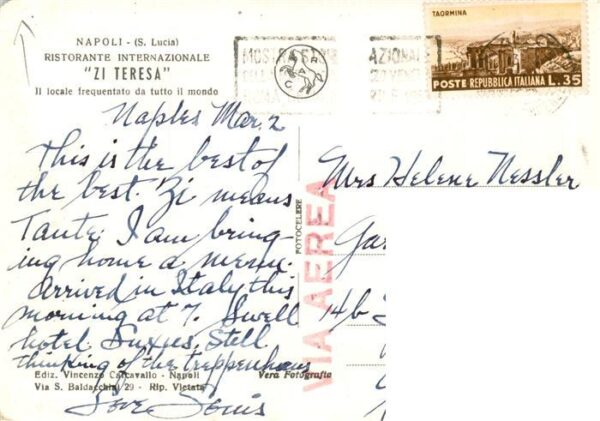 NAPOLI - (S. Lucia)
RISTORANTE INTERNAZIONALE
"ZI TERESA"
Il locale frequentato da tutto il mondo
Naples Mar. 2
This is the best of
the best. Zi means
Tante. I am bring-
ing home a menu.
Arrived in Italy this
morning at 7. Swell
hotel. Still
thinking of the treppenhaus
Love
Ediz. Vincenzo Carcavallo - Napoli
Via S. Baldacchini 29 - Rip. Vietata
Vera Fotografia
FOTOCELERE
VIA AEREA
MOSTRA
AZIONALE
TAORMINA
POSTE REPUBBLICA ITALIANA L. 35
Mrs Helene Nessler
Gar
14b